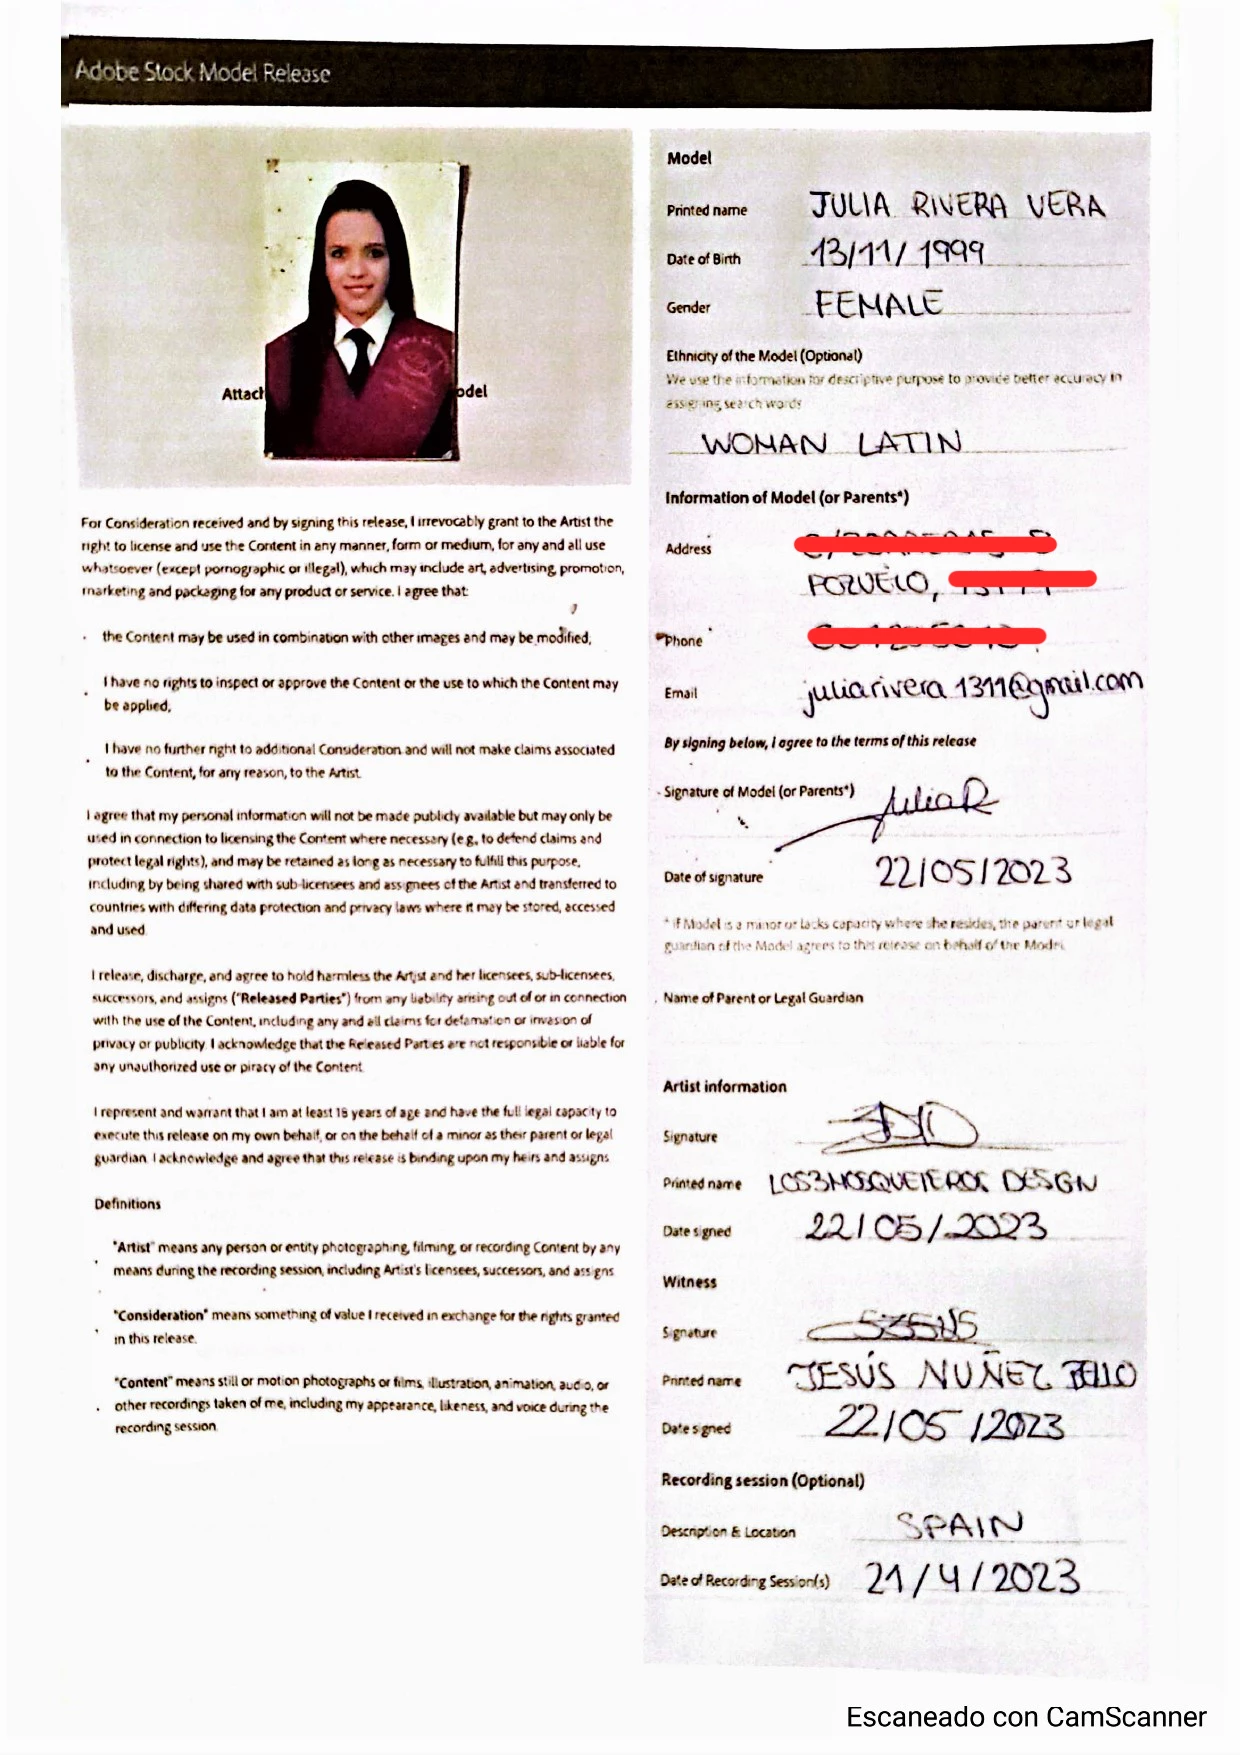 Adobe Stock Model Release
Attach
odel
For Consideration received and by signing this release, I irrevocably grant to the Artist the
right to license and use the Content in any manner, form or medium, for any and all use
whatsoever (except pornographic or illegal), which may include art, advertising, promotion,
marketing and packaging for any product or service. I agree that:
the Content may be used in combination with other images and may be modified;
I have no rights to inspect or approve the Content or the use to which the Content may
be applied;
I have no further right to additional Consideration and will not make claims associated
to the Content, for any reason, to the Artist.
I agree that my personal information will not be made publicly available but may only be
used in connection to licensing the Content where necessary (e.g., to defend claims and
protect legal rights), and may be retained as long as necessary to fulfill this purpose,
including by being shared with sub-licensees and assignees of the Artist and transferred to
countries with differing data protection and privacy laws where it may be stored, accessed
and used.
I release, discharge, and agree to hold harmless the Artist and her licensees, sub-licensees,
successors, and assigns ("Released Parties") from any liability arising out of or in connection
with the use of the Content, including any and all claims for defamation or invasion of
privacy or publicity. I acknowledge that the Released Parties are not responsible or liable for
any unauthorized use or piracy of the Content.
I represent and warrant that I am at least 18 years of age and have the full legal capacity to
execute this release on my own behalf, or on the behalf of a minor as their parent or legal
guardian. I acknowledge and agree that this release is binding upon my heirs and assigns
Definitions
"Artist" means any person or entity photographing, filming, or recording Content by any
means during the recording session, including Artist's licensees, successors, and assigns
"Consideration" means something of value I received in exchange for the rights granted
in this release.
"Content" means still or motion photographs or films, illustration, animation, audio, or
other recordings taken of me, including my appearance, likeness, and voice during the
recording session
Model
Printed name JULIA RIVERA VERA
Date of Birth 13/11/1999
Gender FEMALE
Ethnicity of the Model (Optional)
We use the information for descriptive purpose to provide better accuracy in
assigning search words
WOMAN LATIN
Information of Model (or Parents*)
Address
POZUELO,
Phone
Email juliarivera1311@gmail.com
By signing below, I agree to the terms of this release
Signature of Model (or Parents*) JuliaR
Date of signature 22/05/2023
* if Model is a minor or lacks capacity where she resides, the parent or legal
guardian of the Model agrees to this release on behalf of the Model.
Name of Parent or Legal Guardian
Artist information
Signature
Printed name LOS3MOSQUETEROS DESIGN
Date signed 22/05/2023
Witness
Signature
Printed name JESÚS NUÑEZ TELLO
Date signed 22/05/2023
Recording session (Optional)
Description & Location SPAIN
Date of Recording Session(s) 21/4/2023
Escaneado con CamScanner